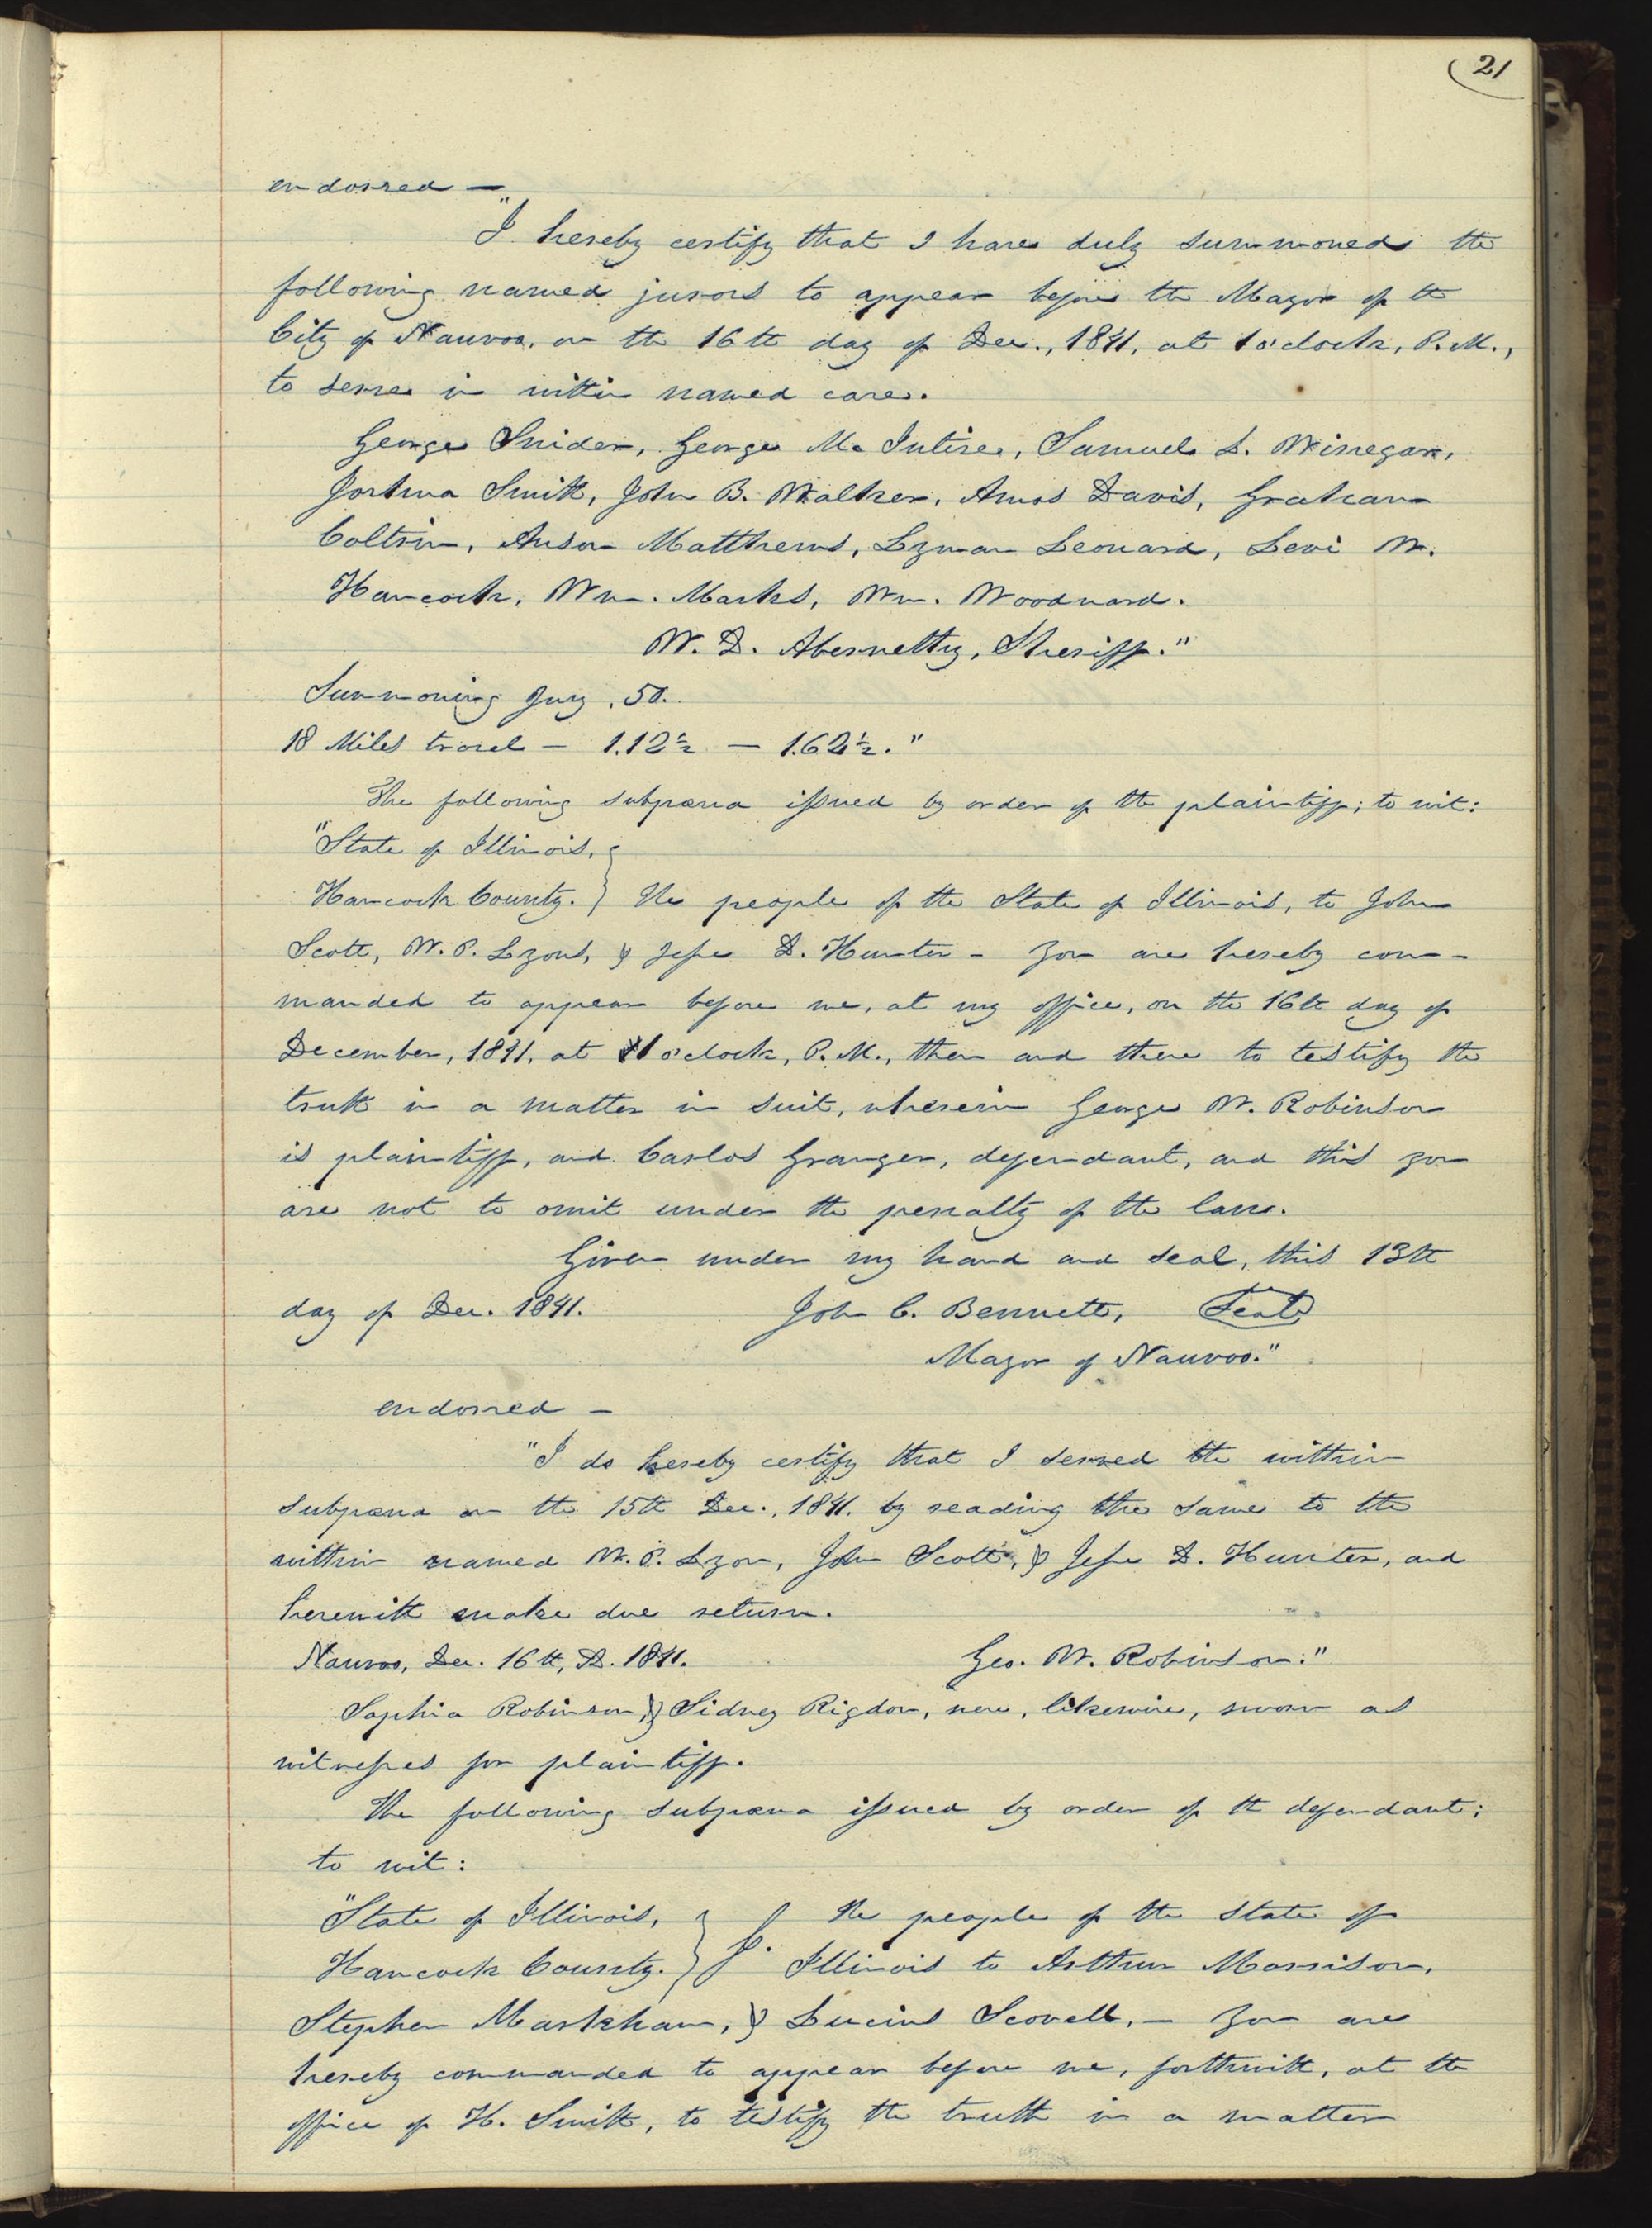 21
endorsed —
"I hereby certify that I have duly summoned the
following named jurors to appear before the Mayor of the
City of Nauvoo, on the 16th day of Dec., 1841, at 1 o'clock, P.M.,
to serve in within named case.
George Snider, George Mc Intire, Samuel L. Winegar,
Joshua Smith, John B. Walker, Amos Davis, Graham
Coltrin, Anson Matthews, Lyman Leonard, Levi W.
Hancock, Wm. Marks, Wm. Woodward.
W. D. Abernethy, Sheriff."
Summoning Jury .50.
18 Miles travel — 1.12½ — 1.62½."
The following subpœna issued by order of the plaintiff; to wit:
"State of Illinois, }
Hancock County. } The people of the State of Illinois, to John
Scott, W. P. Lyons, & Jesse D. Hunter – You are hereby com-
manded to appear before me, at my office, on the 16th day of
December, 1841, at 1 o'clock, P.M., then and there to testify the
truth in a matter in suit, wherein George W. Robinson
is plaintiff, and Carlos Granger, defendant, and this you
are not to omit under the penalty of the law.
Given under my hand and seal, this 13th
day of Dec. 1841. John C. Bennett, Seal
Mayor of Nauvoo."
endorsed —
"I do hereby certify that I served the within
subpœna on the 15th Dec., 1841. by reading the same to the
within named W. P. Lyon, John Scott, & Jesse D. Hunter, and
herewith make due return.
Nauvoo, Dec. 16th, D. 1841. Geo. W. Robinson."
Sophia Robinson, & Sidney Rigdon, were, likewise, sworn as
witnesses for plaintiff.
The following subpœna issued by order of the defendant;
to wit:
"State of Illinois, } The people of the State of
Hancock County. } Illinois to Arthur Morrison,
Stephen Markham, & Lucius Scovell, – You are
hereby commanded to appear before me, forthwith, at the
office of H. Smith, to testify the truth in a matter